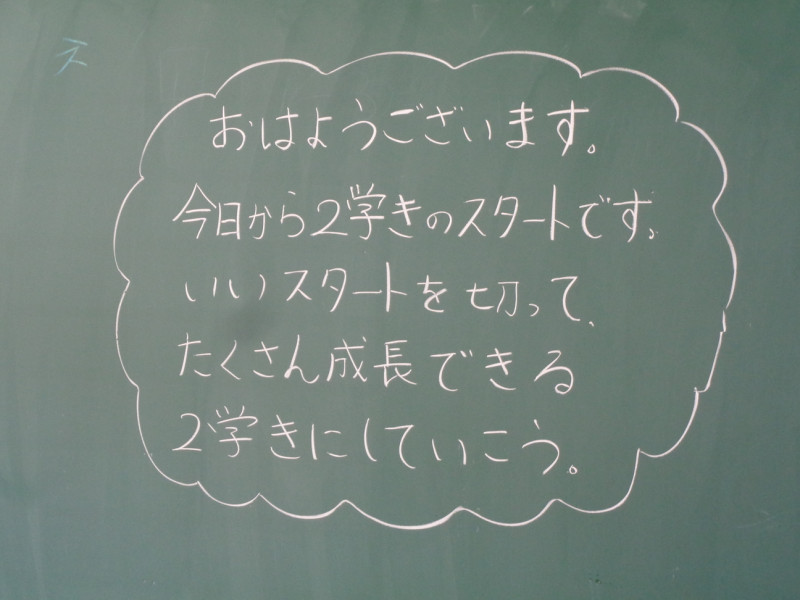 おはようございます。
今日から2学きのスタートです。
いいスタートを切って、
たくさん成長できる
2学きにしていこう。